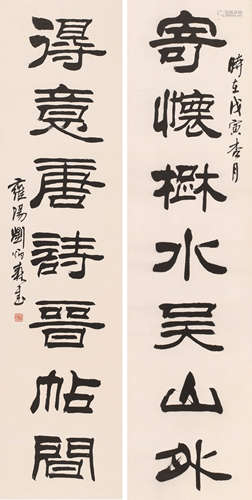 時在戊寅杏月
寄懷楚水吳山外
得意唐詩晉帖間
雍陽劉炳森書